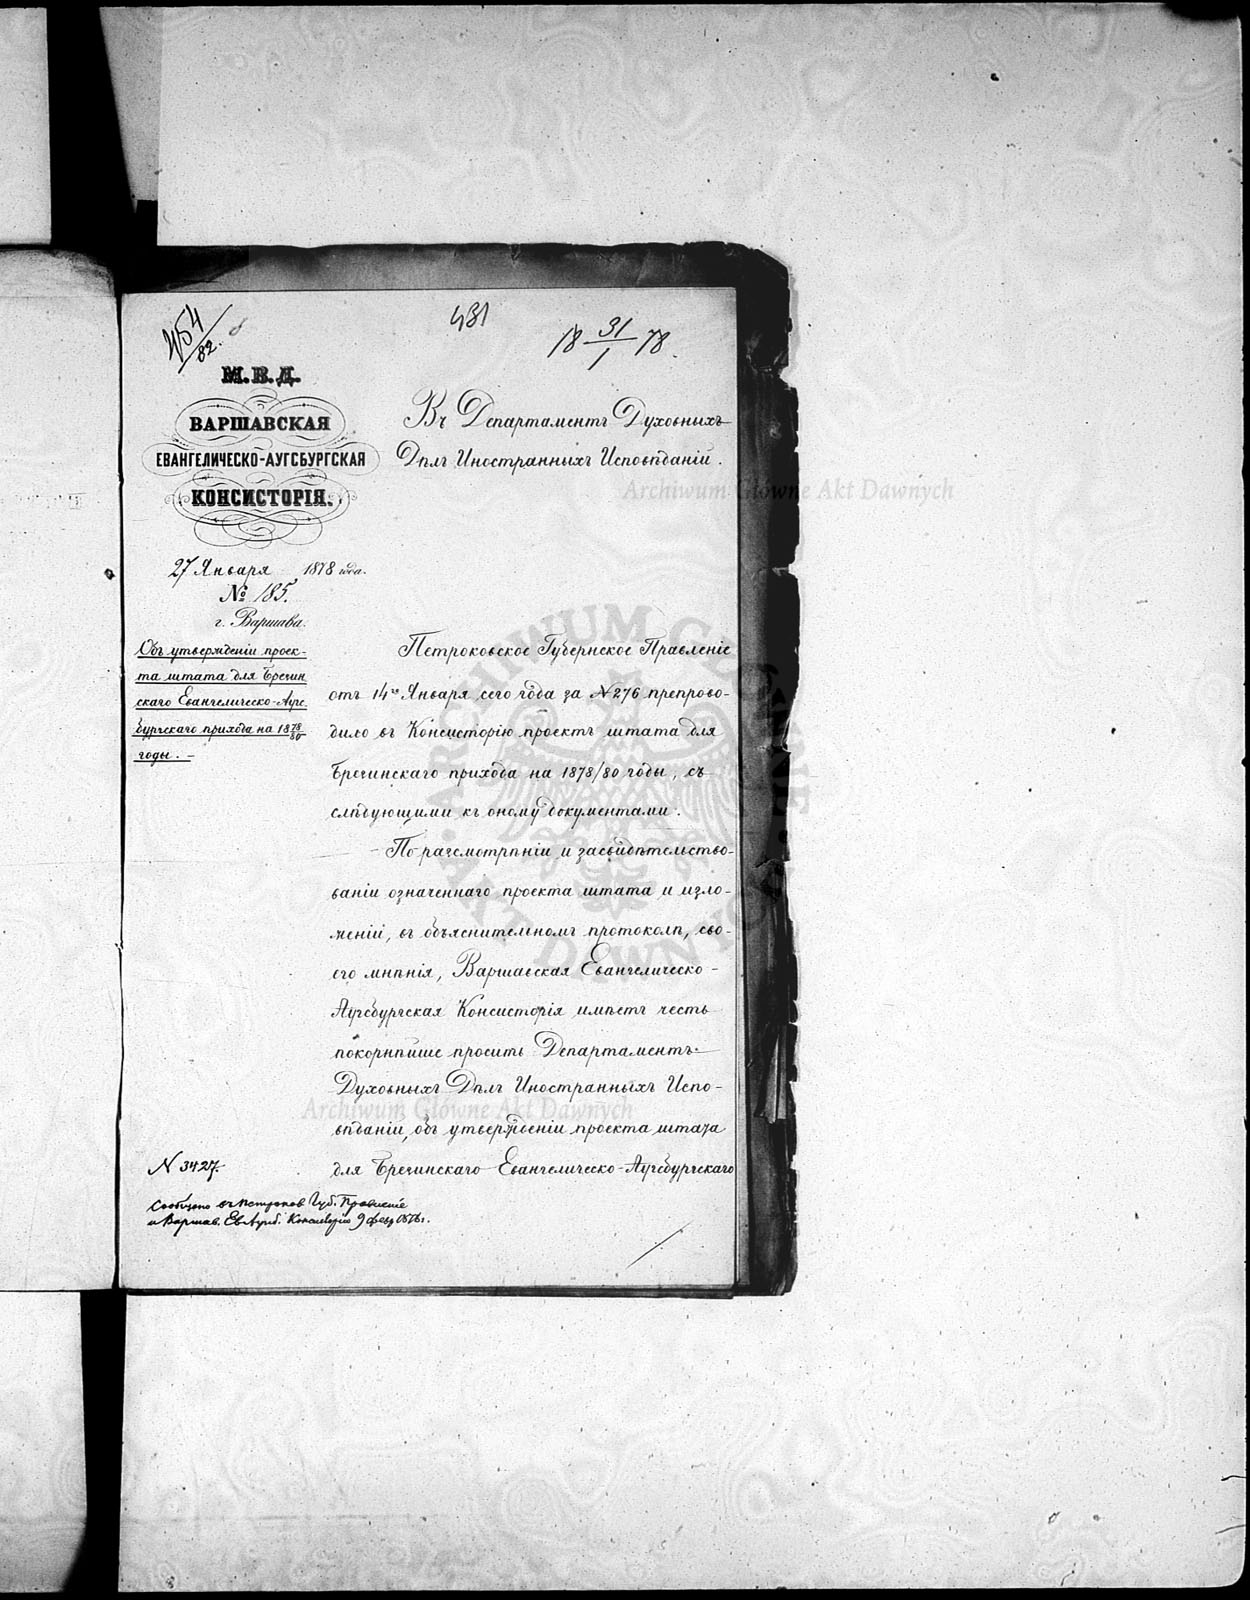 454/82.
431
18 31/1 78.
М.В.Д.
ВАРШАВСКАЯ
ЕВАНГЕЛИЧЕСКО-АУГСБУРГСКАЯ
КОНСИСТОРІЯ.
27 Января 1878 года.
№ 185.
г. Варшава.
Объ утвержденіи проек-
та штата для Брезин
скаго Евангелическо-Аугс.
бургскаго прихода на 1878/80
годы. –
Въ Департаментъ Духовныхъ
Дѣлъ Иностранныхъ Исповѣданій.
Петроковское Губернское Правленіе
отъ 14го Января сего года за N 276 препрово-
дило въ Консисторію проектъ штата для
Брезинскаго прихода на 1878/80 годы, съ
слѣдующими къ оному документами.
По разсмотрѣніи и засвидѣтельство-
ваніи означеннаго проекта штата и изло-
женіи, въ объяснительномъ протоколѣ, сво-
его мнѣнія, Варшавская Евангелическо-
Аугсбургская Консисторія имѣетъ честь
покорнѣйше просить Департаментъ
Духовныхъ Дѣлъ Иностранныхъ Испо-
вѣданій, объ утвержденіи проекта штата
для Брезинскаго Евангелическо-Аугсбургскаго
N 3427.
Сообщено въ Петроков Губ. Правленіе
и Варшав. Ев Аугсб. Консисторію 9 февр
Archiwum Główne Akt Dawnych
ARCHIWUM GŁÓWNE AKT DAWNYCH
Archiwum Główne Akt Dawnych